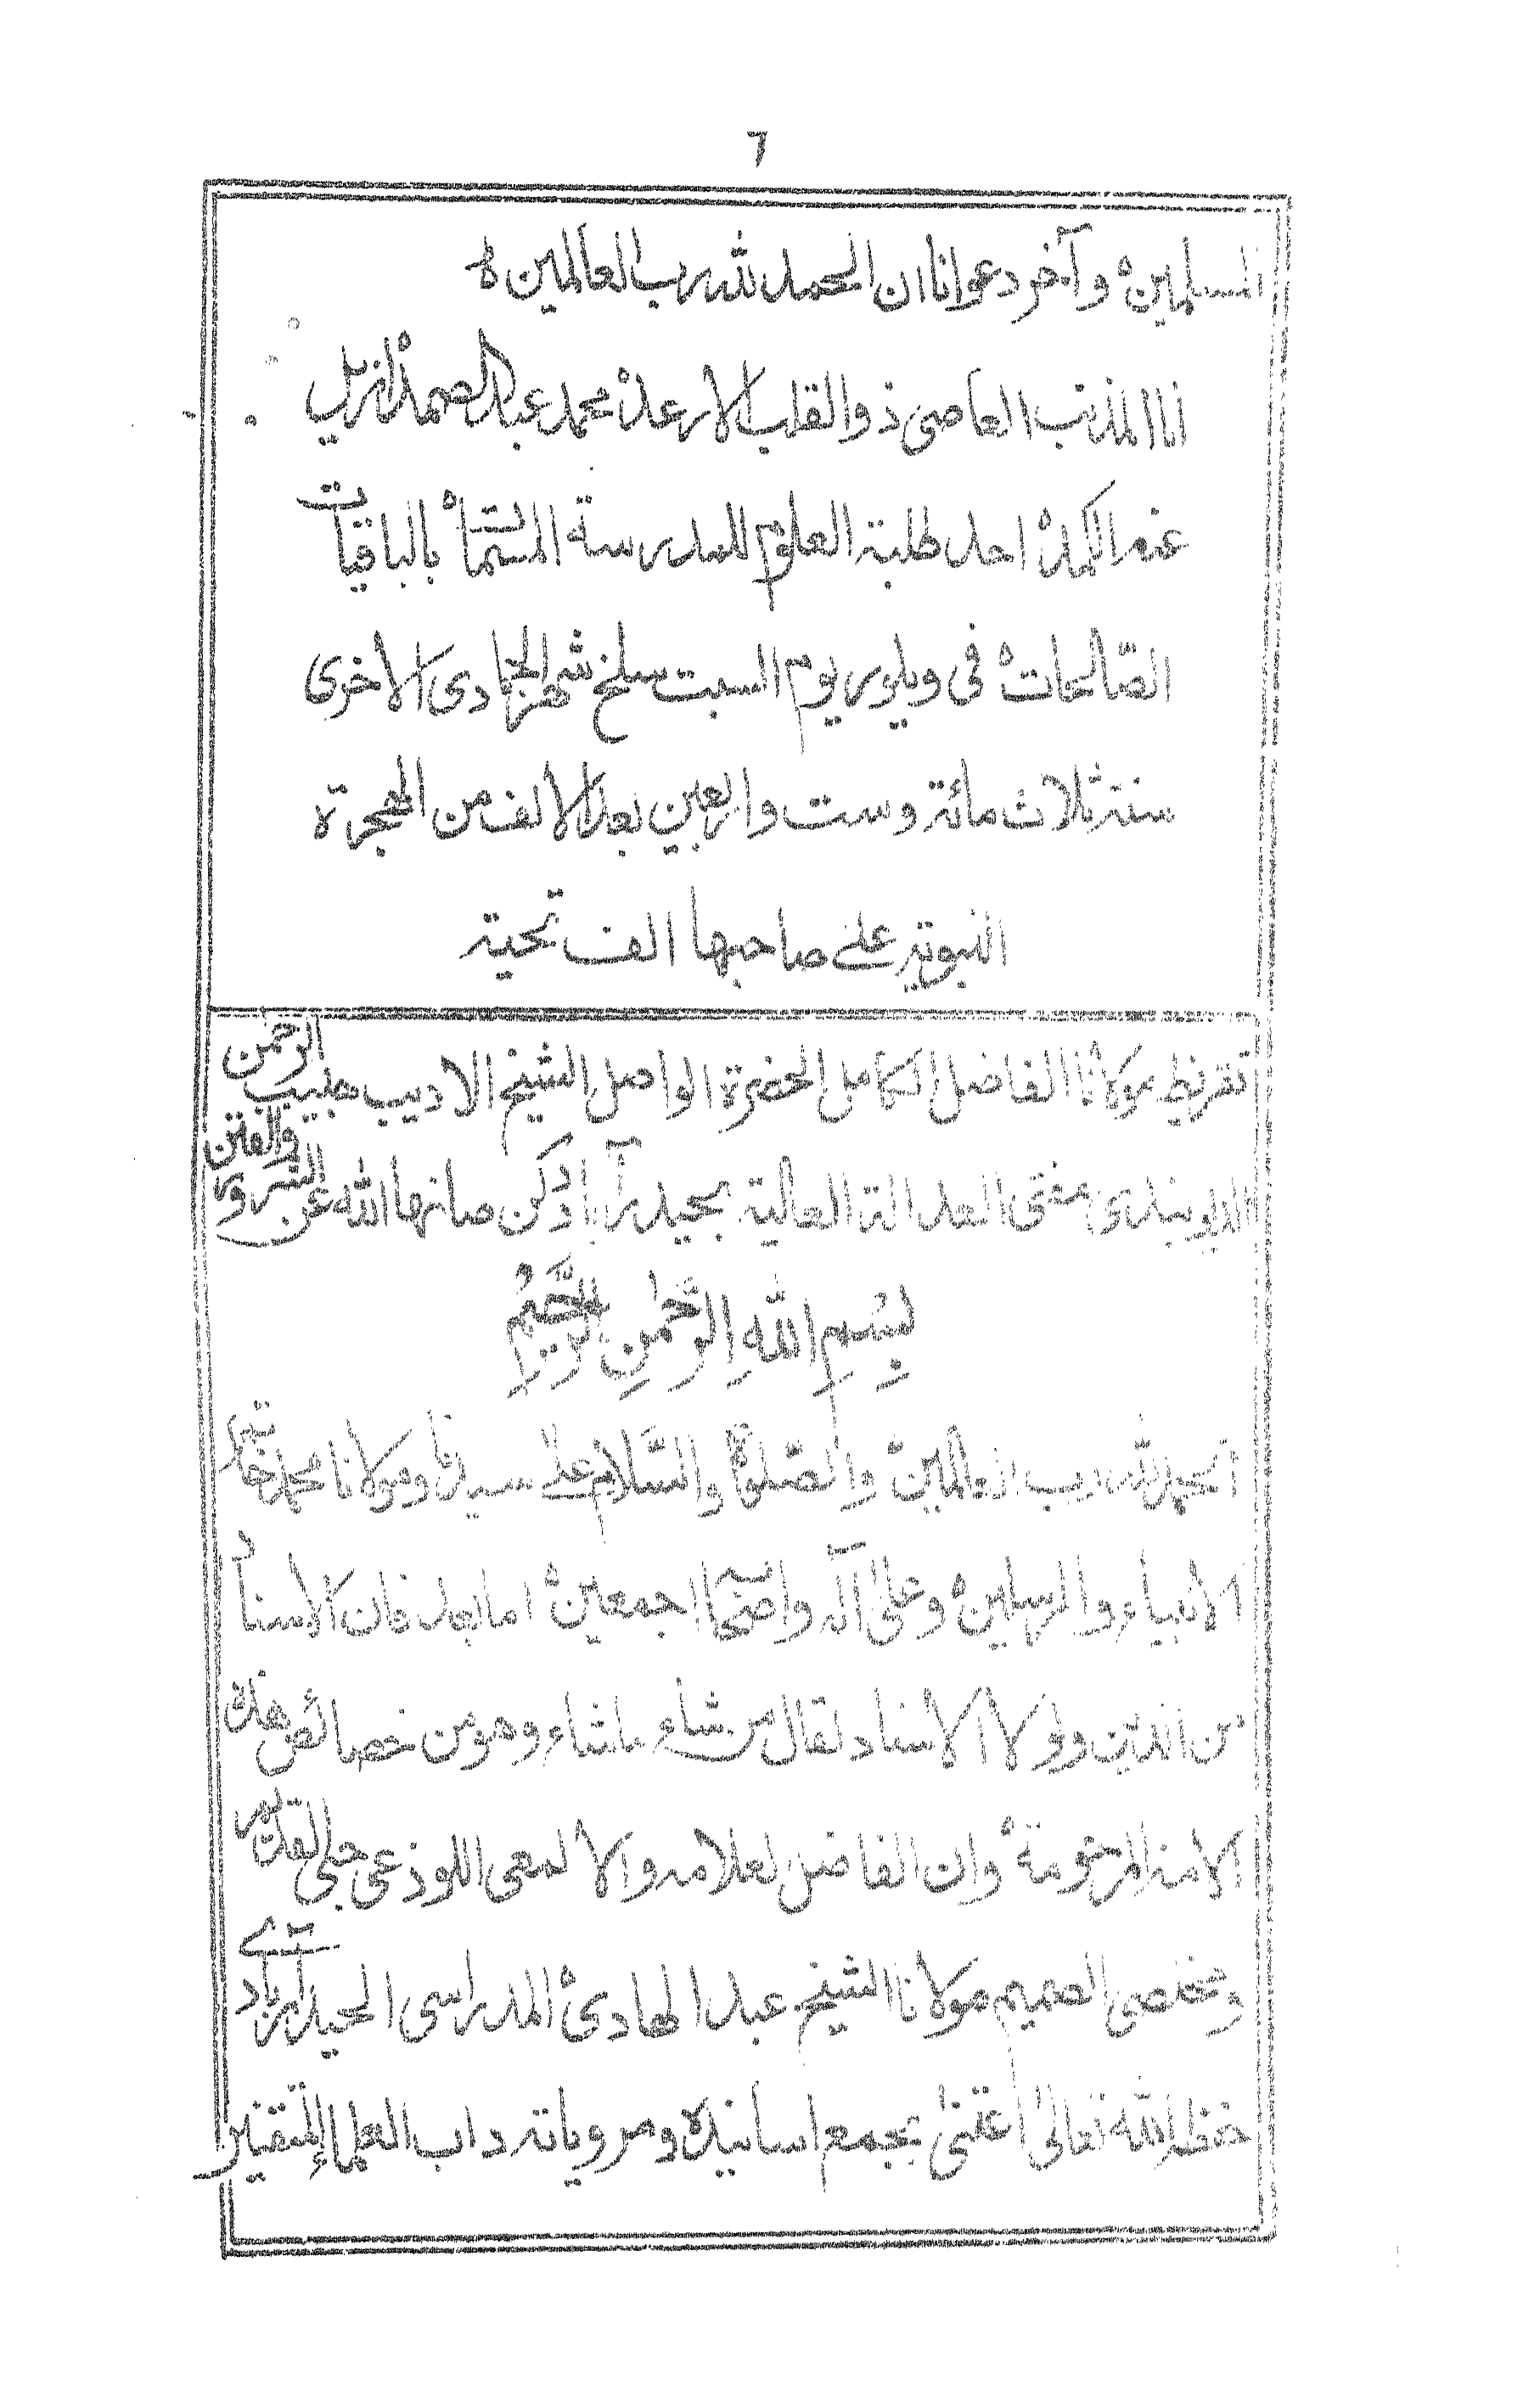 ٦
المسلمين٥ وآخر دعوانا ان الحمد لله رب العالمين ٥
انا المذنب العاصى ذو القلب الارعد٥ محمد عبد الصمد٥ ازيل
عنه الكمد٥ احد طلبة العلوم للمدرسة المسمات٥ بالباقيات
الصّالحات٥ فى ويلور يوم السبت سلخ شهر الجمادى الاخرى
سنة ثلاث مائة وست واربعين بعد الالف من الهجرة
النبوية على صاحبها الف تحية
تقريظ مولانا الفاضل الكامل الحضرة الواصل الشيخ الاديب حبيب الرحمن
الديوبندى مفتى العدالة العالية بحيدرآباد دكن صانها الله عن الشرور والفتن
بِسْمِ اللهِ الرَّحْمٰنِ الرَّحِيْمِ
الحمد لله رب العالمين والصّلوة والسَّلام علىٰ سيدنا ومولانا محمد خاتم
الانبياء والمرسلين٥ وعلىٰ آله واصحابه اجمعين٥ اما بعد فان الاسناد
من الدين ولولا الاسناد لقال من شاء ما شاء وهو من خصائص هذه
الامة المرحومة٥ وان الفاضل لعلامه والالمعى اللوذعى حبى القديم
ومخلصى الصميم مولانا الشيخ عبد الهادى٥ المدراسى الحيدرآبادى
حفظه الله تعالىٰ اعتنىٰ بجمع اسانيده ومروياته داب العلماء المتقنين